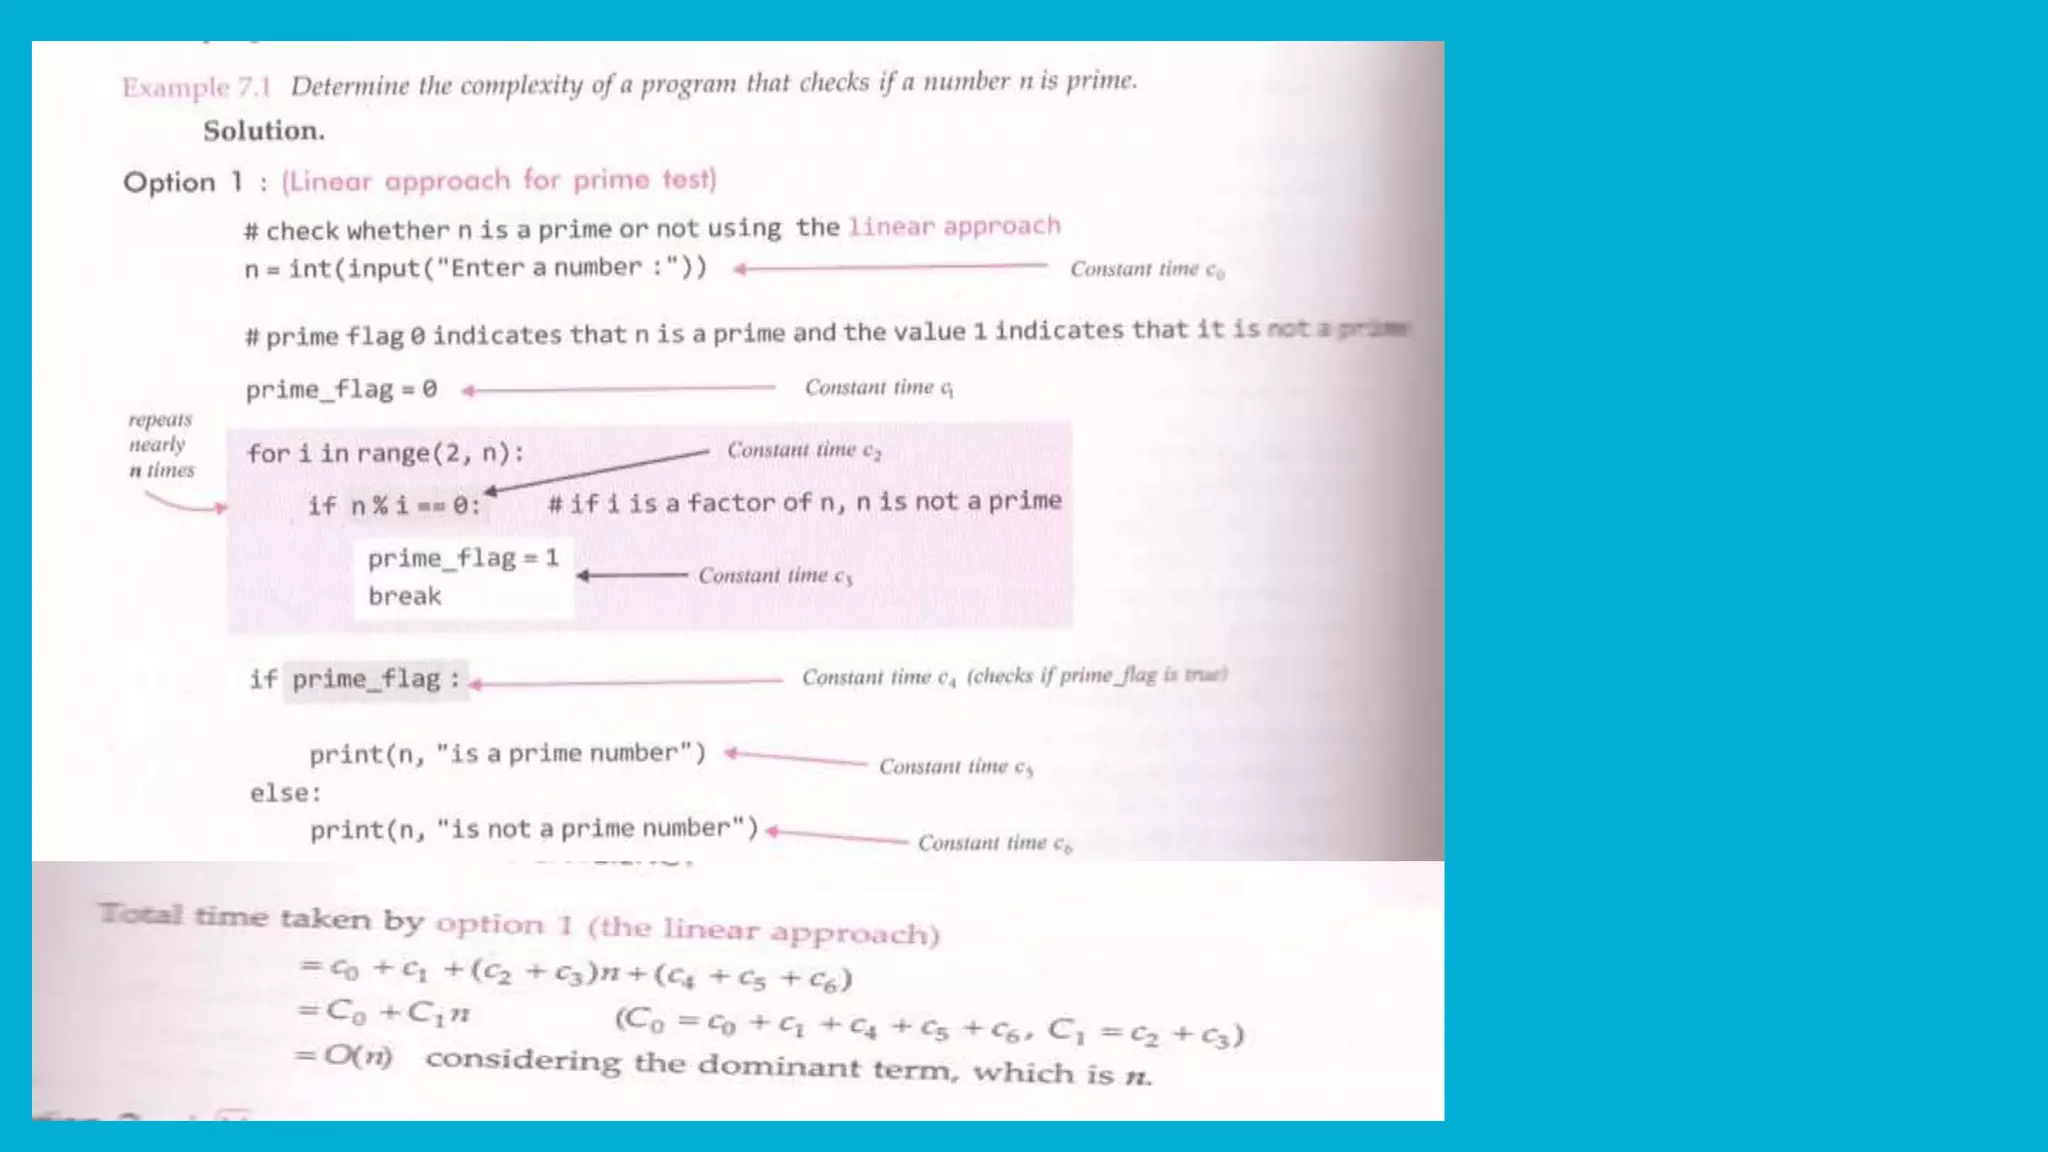 Example 7.1 Determine the complexity of a program that checks if a number n is prime.
Solution.
Option 1 : (Linear approach for prime test)
# check whether n is a prime or not using the linear approach
n = int(input("Enter a number :")) Constant time c₀
# prime flag 0 indicates that n is a prime and the value 1 indicates that it is not a prime
prime_flag = 0 Constant time c₁
repeats
nearly
n times
for i in range(2, n): Constant time c₂
if n % i == 0: # if i is a factor of n, n is not a prime
prime_flag = 1
Constant time c₃
break
if prime_flag : Constant time c₄ (checks if prime_flag is true)
print(n, "is a prime number") Constant time c₅
else:
print(n, "is not a prime number") Constant time c₆
Total time taken by option 1 (the linear approach)
= c₀ + c₁ + (c₂ + c₃)n + (c₄ + c₅ + c₆)
= C₀ + C₁n (C₀ = c₀ + c₁ + c₄ + c₅ + c₆, C₁ = c₂ + c₃)
= O(n) considering the dominant term, which is n.